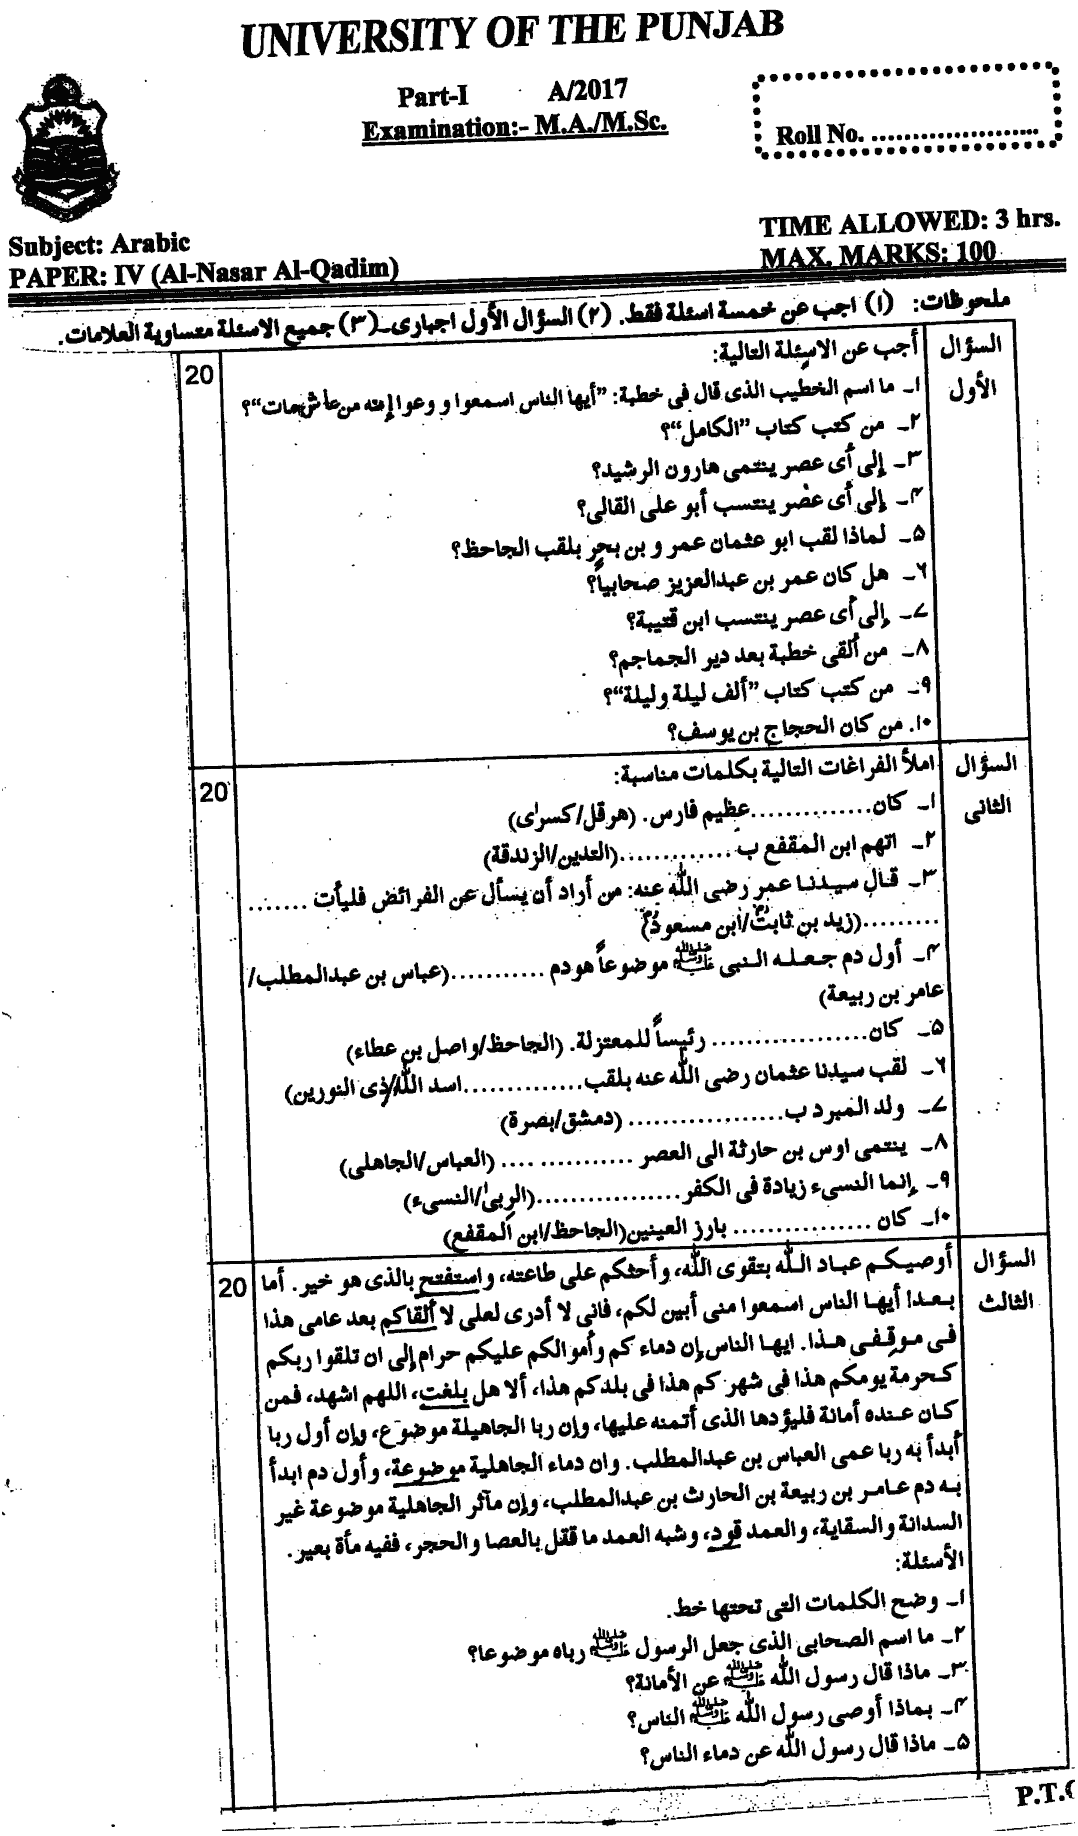 UNIVERSITY OF THE PUNJAB
Part-I A/2017
Examination:- M.A./M.Sc.
Roll No. ....................
Subject: Arabic
PAPER: IV (Al-Nasar Al-Qadim)
TIME ALLOWED: 3 hrs.
MAX. MARKS: 100
ملحوظات: (۱) اجب عن خمسة اسئلة فقط. (۲) السؤال الأول اجبارى۔ (۳) جميع الاسئلة متساوية العلامات.
السؤال الأول
20
أجب عن الاسئلة التالية:
۱۔ ما اسم الخطيب الذى قال فى خطبة: ”أيها الناس اسمعوا و وعوا إنه من عاش مات“؟
۲۔ من كتب كتاب ”الكامل“؟
۳۔ إلى أى عصر ينتمى هارون الرشيد؟
۴۔ إلى أى عصر ينتسب أبو على القالى؟
۵۔ لماذا لقب ابو عثمان عمر و بن بحر بلقب الجاحظ؟
۶۔ هل كان عمر بن عبدالعزيز صحابياً؟
۷۔ إلى أى عصر ينتسب ابن قتيبة؟
۸۔ من ألقى خطبة بعد دير الجماجم؟
۹۔ من كتب كتاب ”ألف ليلة وليلة“؟
۱۰. من كان الحجاج بن يوسف؟
السؤال الثانى
20
املأ الفراغات التالية بكلمات مناسبة:
۱۔ كان..............عظيم فارس. (هرقل/كسرىٰ)
۲۔ اتهم ابن المقفع ب .............(التدين/الزندقة)
۳۔ قال سيدنا عمر رضى الله عنه: من أراد أن يسأل عن الفرائض فليأت .......
.........(زيد بن ثابتؓ/ابن مسعودؓ)
۴۔ أول دم جعله النبى ﷺ موضوعاً هو دم ...........(عباس بن عبدالمطلب/
عامر بن ربيعة)
۵۔ كان.................. رئيساً للمعتزلة. (الجاحظ/واصل بن عطاء)
۶۔ لقب سيدنا عثمان رضى الله عنه بلقب..............اسد الله/ذى النورين)
۷۔ ولد المبرد ب.................. (دمشق/بصرة)
۸۔ ينتمى اوس بن حارثة الى العصر ........... .... (العباس/الجاهلى)
۹۔ إنما النسىء زيادة فى الكفر.................(الربىٰ/النسىء)
۱۰۔ كان ................ بارز العينين(الجاحظ/ابن المقفع)
السؤال الثالث
20
أوصيكم عباد الله بتقوى الله، وأحثكم على طاعته، واستفتح بالذى هو خير. أما
بعد! أيها الناس اسمعوا منى أبين لكم، فانى لا أدرى لعلى لا ألقاكم بعد عامى هذا
فى موقفى هذا. ايها الناس إن دماء كم وأموالكم عليكم حرام إلى ان تلقوا ربكم
كحرمة يومكم هذا فى شهر كم هذا فى بلدكم هذا، ألا هل بلغت، اللهم اشهد، فمن
كان عنده أمانة فليؤدها الذى أتمنه عليها، وإن ربا الجاهيلة موضوع، وإن أول ربا
أبدأ به ربا عمى العباس بن عبدالمطلب. وان دماء الجاهلية موضوعة، وأول دم ابدأ
به دم عامر بن ربيعة بن الحارث بن عبدالمطلب، وإن مآثر الجاهلية موضوعة غير
السدانة والسقاية، والعمد قود، وشبه العمد ما قتل بالعصا والحجر، ففيه مأة بعير.
الأسئلة:
۱۔ وضح الكلمات التى تحتها خط.
۲۔ ما اسم الصحابى الذى جعل الرسول ﷺ رباه موضوعا؟
۳۔ ماذا قال رسول الله ﷺ عن الأمانة؟
۴۔ بماذا أوصى رسول الله ﷺ الناس؟
۵۔ ماذا قال رسول الله عن دماء الناس؟
P.T.O